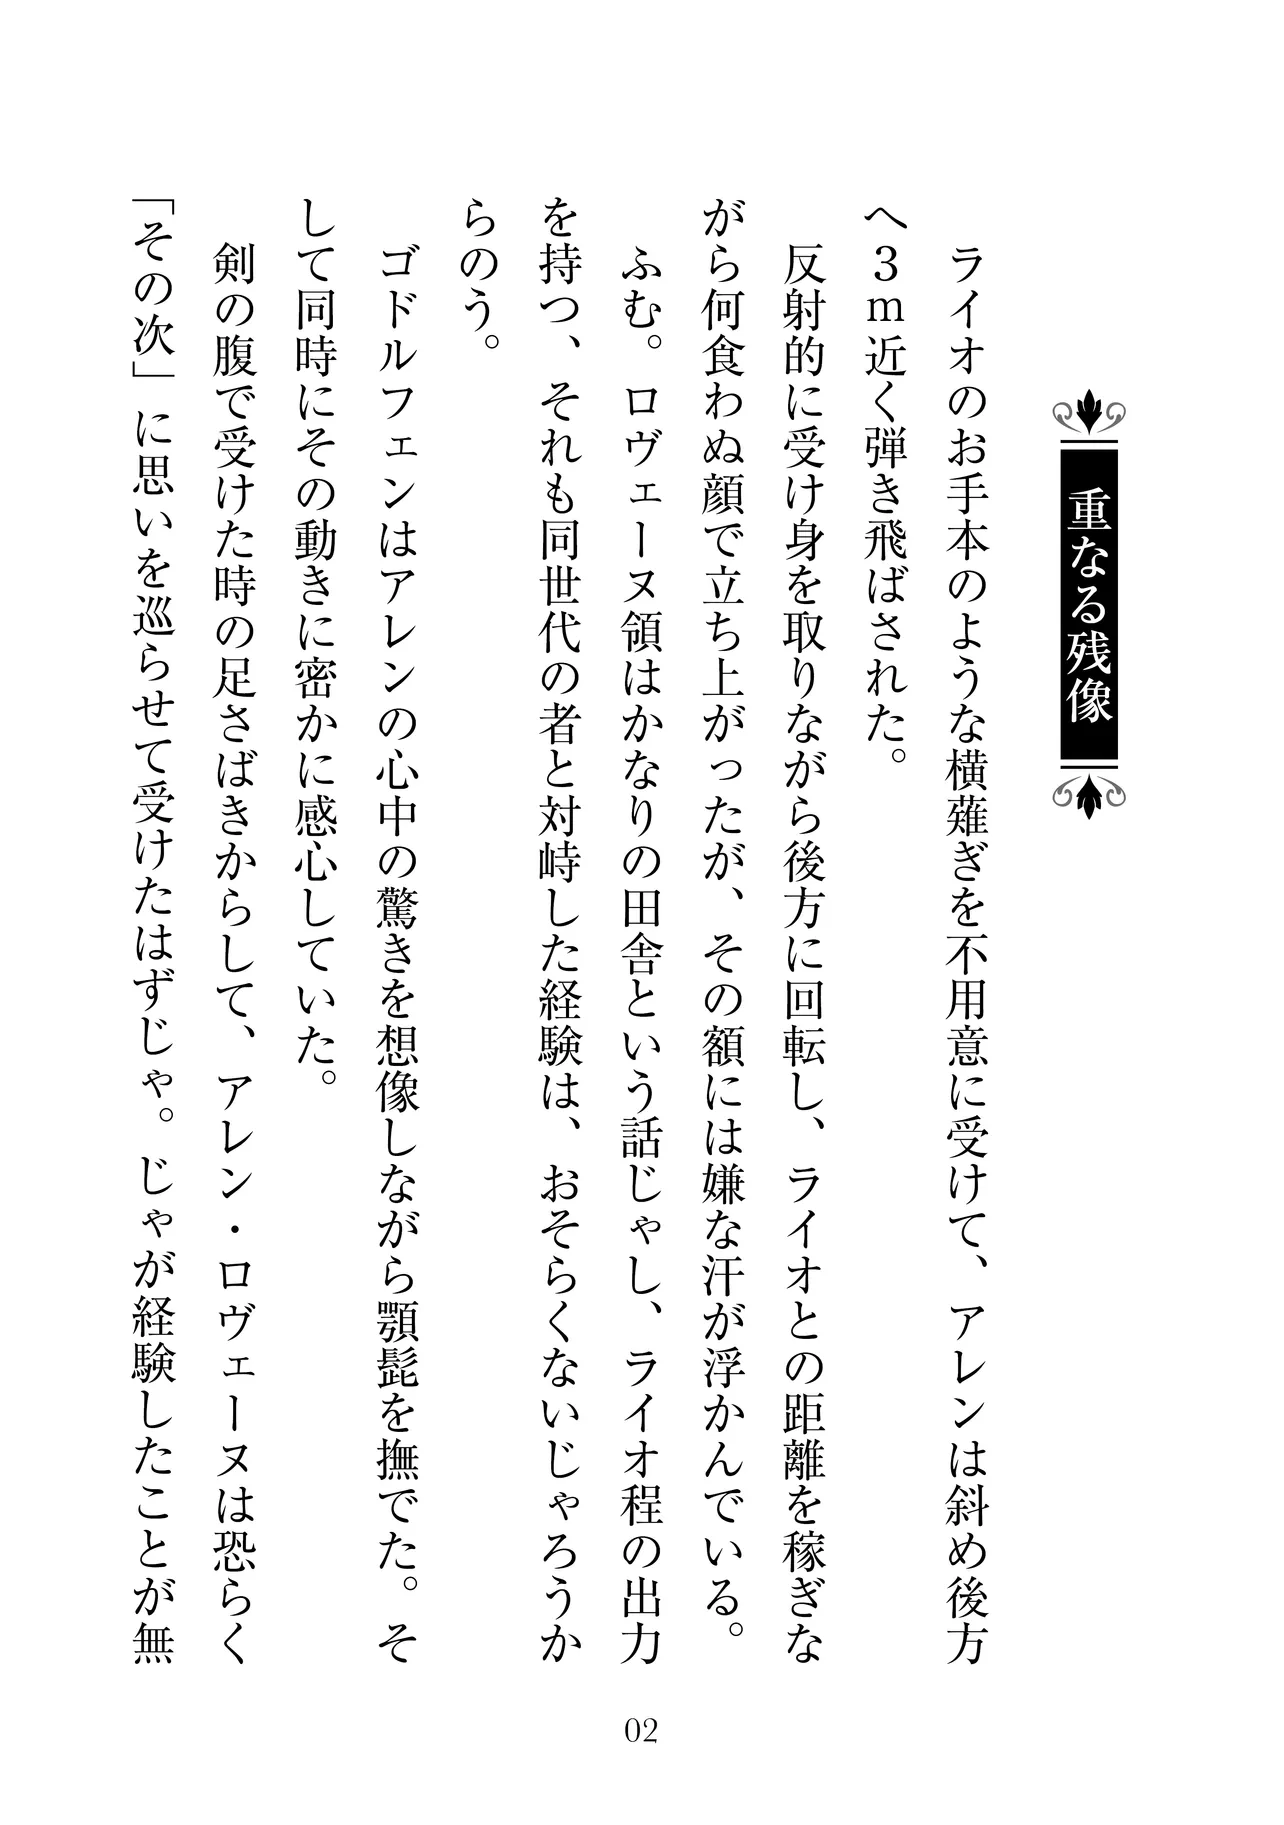 重なる残像
　ライオのお手本のような横薙ぎを不用意に受けて、アレンは斜め後方
へ３ｍ近く弾き飛ばされた。
　反射的に受け身を取りながら後方に回転し、ライオとの距離を稼ぎな
がら何食わぬ顔で立ち上がったが、その額には嫌な汗が浮かんでいる。
　ふむ。ロヴェーヌ領はかなりの田舎という話じゃし、ライオ程の出力
を持つ、それも同世代の者と対峙した経験は、おそらくないじゃろうか
らのう。
　ゴドルフェンはアレンの心中の驚きを想像しながら顎髭を撫でた。そ
して同時にその動きに密かに感心していた。
　剣の腹で受けた時の足さばきからして、アレン・ロヴェーヌは恐らく
「その次」に思いを巡らせて受けたはずじゃ。じゃが経験したことが無
02